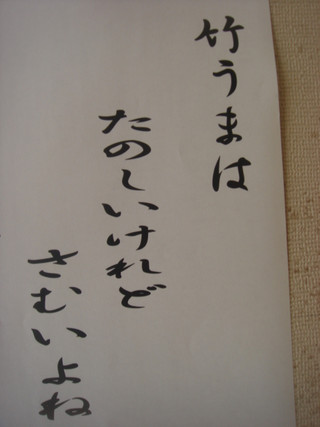 竹うまは
たのしいけれど
さむいよね